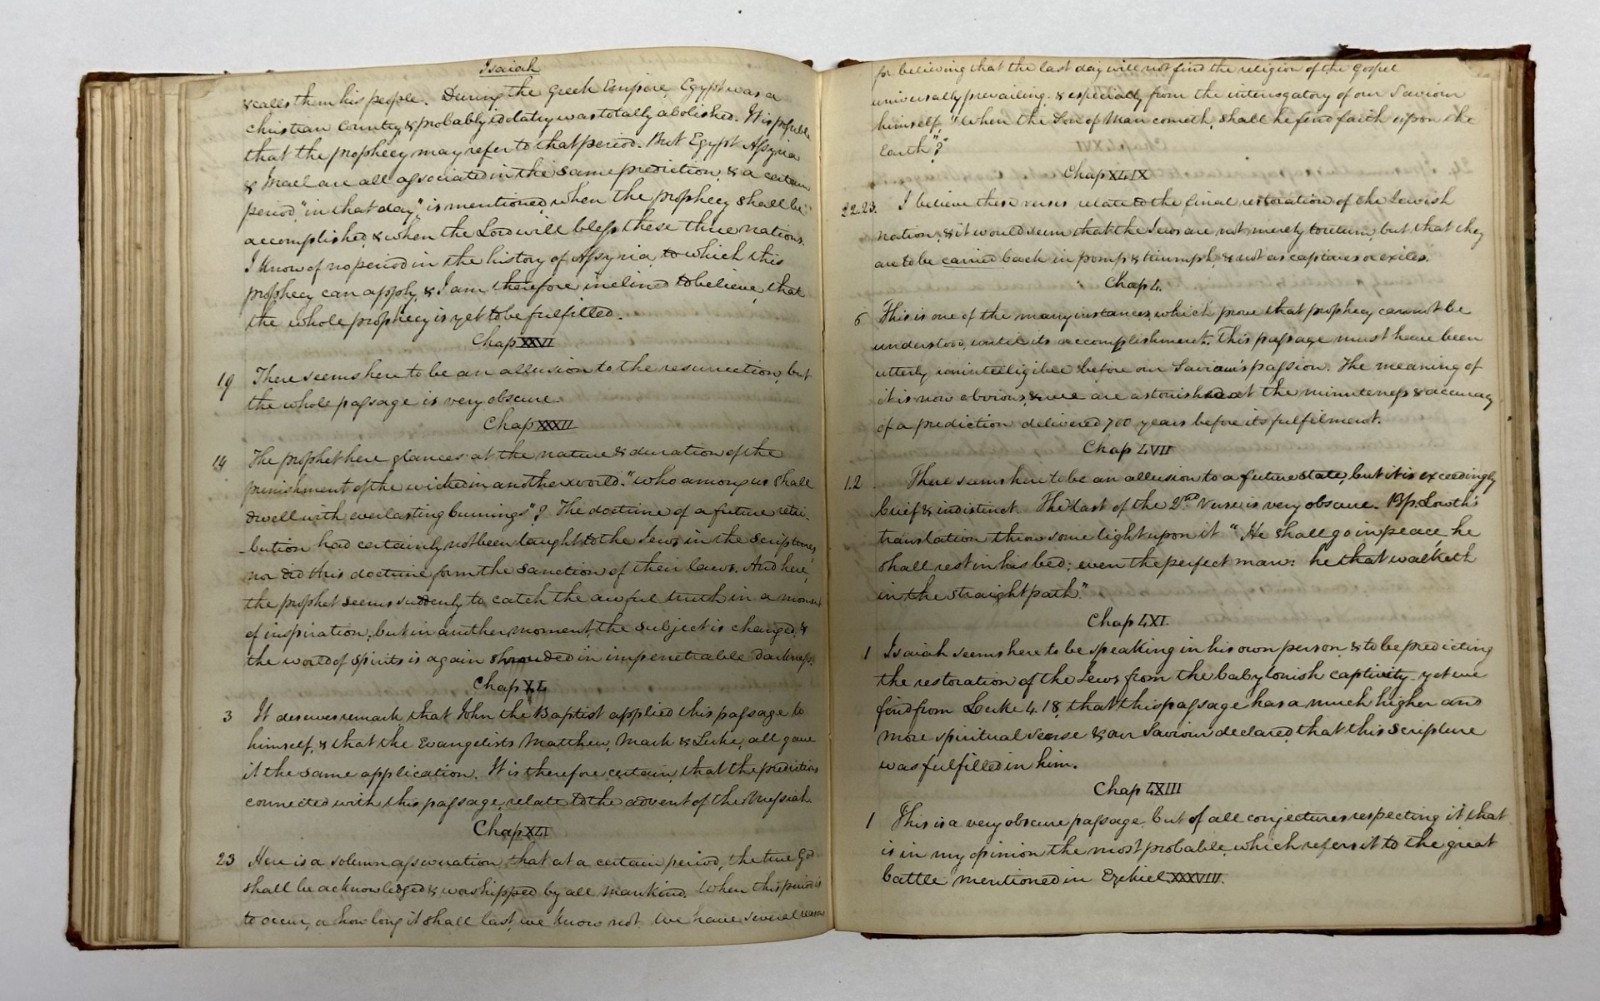 Isaiah
& calls them his people. During the Greek Empire, Egypt was a
Christian Country & probably idolatry was totally abolished. It is possible
that the prophecy may refer to that period. But Egypt Assyria
& Israel are all associated in the same prediction, & a certain
period, "in that day," is mentioned, when the prophecy shall be
accomplished & when the Lord will bless these three nations.
I know of no period in the history of Assyria, to which this
prophecy can apply, & I am therefore inclined to believe, that
the whole prophecy is yet to be fulfilled.
Chap XXVI
19 There seems here to be an allusion to the resurrection, but
the whole passage is very obscure.
Chap XXXII
14 The prophet here glances at the nature & duration of the
punishment of the wicked in another world. "Who among us shall
dwell with everlasting burnings"? The doctrine of a future retri-
-bution had certainly not been taught to the Jews in the Scriptures,
nor did this doctrine form the sanction of their laws. And here,
the prophet seems suddenly to catch the awful truth in a moment
of inspiration, but in another moment, the subject is changed, &
the world of spirits is again shrouded in impenetrable darkness.
Chap XL
3 It deserves remark, that John the Baptist applied this passage to
himself, & that the Evangelists Matthew, Mark & Luke, all gave
it the same application. It is therefore certain, that the predictions
connected with this passage, relate to the advent of the Messiah.
Chap XLI
23 Here is a solemn asseveration, that at a certain period, the true God
shall be acknowledged & worshipped by all mankind. When this period is
to occur, or how long it shall last, we know not. We have several reasons
for believing that the last day will not find the religion of the Gospel
universally prevailing, & especially from the interrogatory of our Saviour
himself, "When the Son of Man cometh, shall he find faith upon the
Earth"?
Chap XLIX
22.23. I believe these verses relate to the final restoration of the Jewish
nation, & it would seem that the Jews are not merely to return, but that they
are to be carried back in pomp & triumph, & not as captives or exiles.
Chap L.
6 This is one of the many instances, which prove that prophecy cannot be
understood, until its accomplishment. This passage must have been
utterly unintelligible before our Saviour's passion. The meaning of
it is now obvious, & we are astonished at the minuteness & accuracy
of a prediction delivered 700 years before its fulfilment.
Chap LVII
1.2 There seems here to be an allusion to a future state, but it is exceedingly
brief & indistinct. The last of the 2nd Verse is very obscure. Bp. Lowth's
translation throws some light upon it "He shall go in peace, he
shall rest in his bed; even the perfect man: he that walketh
in the straight path."
Chap LXI.
1 Isaiah seems here to be speaking in his own person, & to be predicting
the restoration of the Jews from the Babylonish captivity, yet we
find from Luke 4.18, that this passage has a much higher and
more spiritual sense & our Saviour declared, that this Scripture
was fulfilled in him.
Chap LXIII
1 This is a very obscure passage, but of all conjectures respecting it, that
is in my opinion the most probable, which refers it to the great
battle mentioned in Ezekiel XXXVIII.